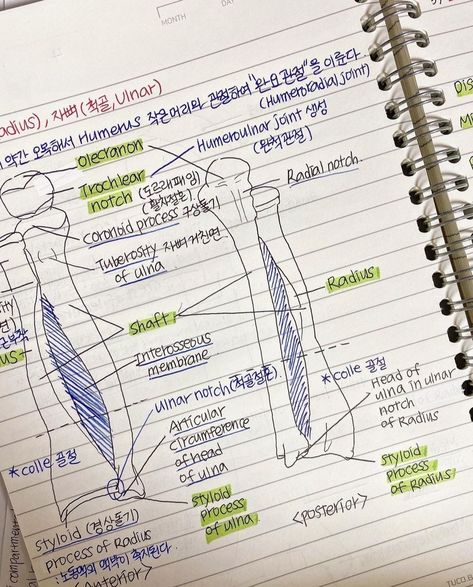 MONTH
DAY
adius), 자뼈 (척골, Ulnar)
약간 오목해서 Humerus 작은머리와 관절하여 "완요관절"을 이룬다
(Humeroradial joint)
olecranon
Humeroulnar joint 생성
(완척관절)
Trochlear
notch (도르래패임)
(활차절흔)
Radial notch
coronoid process 구상돌기
Tuberosity 자뼈거친면
of ulna
Radius
shaft
Interosseous
membrane
ulnar notch (척골절흔)
*colle 골절
Head of
ulna in ulnar
notch
of Radius
Articular
circumference
of head
of ulna
*colle 골절
styloid
process
of ulna
styloid
process
of Radius
<posterior>
styloid (경상돌기)
process of Radius
: 노동맥의 맥박이 촉지된다.
Anterior>
compartment